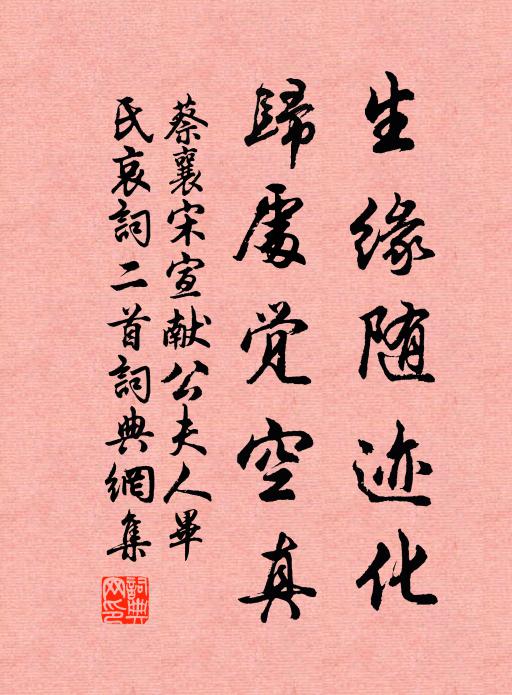 生缘随迹化
歸處覚空真
蔡襄宋宣献公夫人畢
氏哀詞二首詞典網集
詞典网印